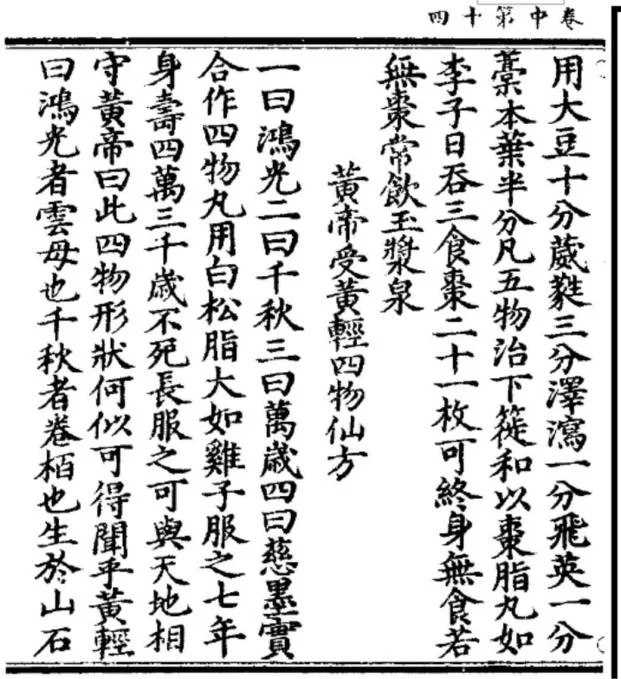 卷中第十四
用大豆十分葳蕤三分澤瀉一分飛英一分
藁本葉半分凡五物治下篵和以棗脂丸如
李子日吞三食棗二十一枚可終身無食若
無棗常飲玉漿泉
黃帝受黃輕四物仙方
一曰鴻光二曰千秋三曰萬歲四曰慈墨實
合作四物丸用白松脂大如雞子服之七年
身壽四萬三千歲不死長服之可與天地相
守黃帝曰此四物形狀何似可得聞乎黃輕
曰鴻光者雲母也千秋者卷栢也生於山石